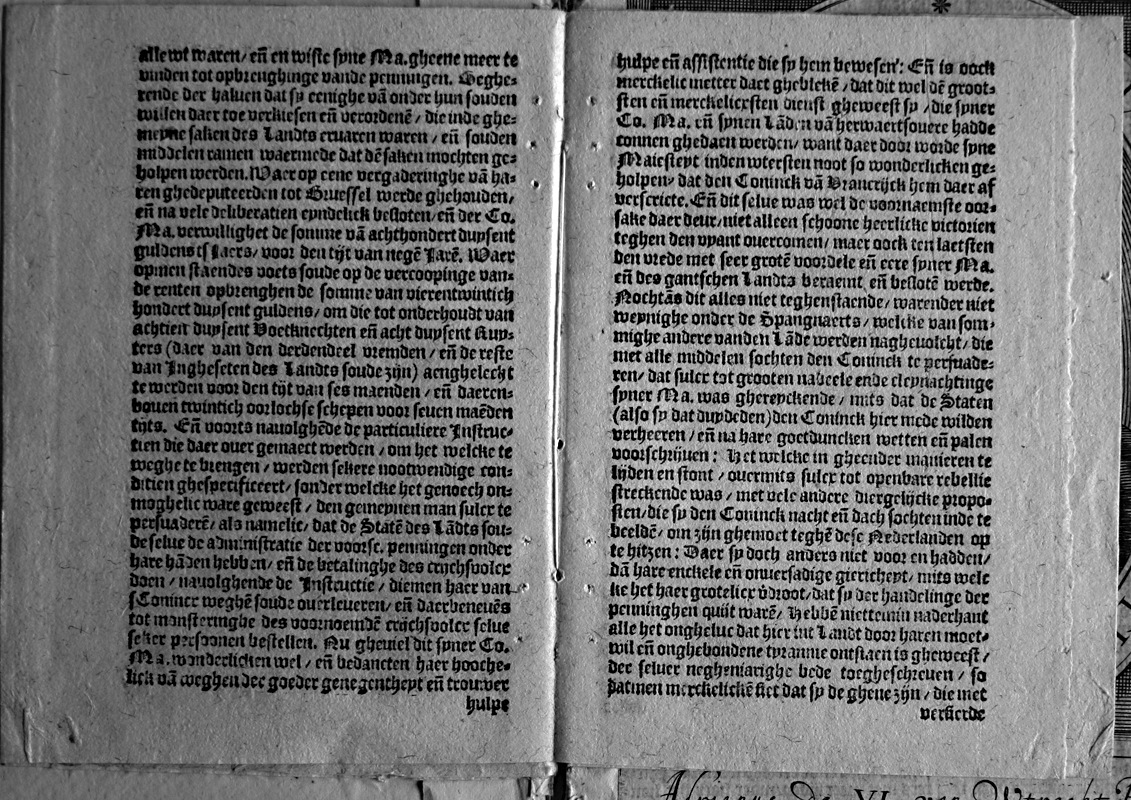 alle wt waren/ eñ en wiste syne Ma. gheene meer te
vinden tot opbrenghinge vande penningen. Beghe⸗
rende der haluen dat sy eenighe vā onder hun souden
willen daer toe verkiesen eñ verordenē/ die inde ghe⸗
meyne saken des Landts eruaren waren/ eñ souden
middelen ramen waermede dat dē saken mochten ge⸗
holpen werden. Waer op eene vergaderinghe vā ha⸗
ren ghedeputeerden tot Bruessel werde ghehouden/
eñ na vele deliberatien eyndelick besloten/ eñ der Co.
Ma. verwillighet de somme vā achthondert duysent
guldens tſ Jaers/ voor den tijt van negē Jarē. Waer
opmen staendes voets soude op de vercoopinge van⸗
de renten opbrenghen de somme van vierentwintich
hondert duysent guldens/ om die tot onderhoudt van
achtien duysent Voetknechten eñ acht duysent Ruy⸗
ters (daer van den derdendeel vremden/ eñ de reste
van Jngheseten des Landts soude zijn) aenghelecht
te werden voor den tijt van ses maenden/ eñ daeren⸗
bouen twintich oorlochse schepen voor seuen maēden
tijts. Eñ voorts nauolghēde de particuliere Jnstruc⸗
tien die daer ouer gemaect werden/ om het welcke te
weghe te brengen/ werden sekere nootwendige con⸗
ditien ghespecificeert/ sonder welcke het genoech on⸗
moghelic ware geweest/ den gemeynen man sulcx te
persuaderē/ als namelic/ dat de Statē des Lādts sou⸗
de selue de administratie der voorsc. penningen onder
hare hāden hebben/ eñ de betalinghe des crijchsvolcx
doen/ nauolghende de Jnstructie/ diemen haer van
ſConincx weghē soude ouerleueren/ eñ daerbeneuēs
tot monsteringhe des voornoemdē crijchsvolcx selue
seker persoonen bestellen. Nu gheviel dit syner Co.
Ma. wonderlicken wel/ eñ bedancten haer hooche⸗
lick vā weghen der goeder genegentheyt eñ trouwer
hulpe
hulpe eñ assistentie die sy hem bewesen: Eñ is oock
merckelic metter daet ghebleken/ dat dit wel dē groot⸗
sten eñ merckelicxsten dienst gheweest sy/ die syner
Co. Ma. eñ synen Lāden vā herwaertsouere hadde
connen ghedaen werden/ want daer door worde syne
Maiesteyt inden wtersten noot so wonderlicken ge⸗
holpen/ dat den Coninck vā Vrancrijck hem daer af
verscricte. Eñ dit selue was wel de voornaemste oor⸗
sake daer deur/ niet alleen schoone heerlicke victorien
teghen den vyant ouercomen/ maer oock ten laetsten
den vrede met seer grotē voordele eñ eere syner Ma.
eñ des gantschen Landts beraemt eñ beslotē werde.
Nochtās dit alles niet teghenstaende/ warender niet
weynighe onder de Spangnaerts/ welcke van som⸗
mighe andere vanden Lāde werden naghevolcht/ die
met alle middelen sochten den Coninck te persuade⸗
ren/ dat sulcx tot grooten nadeele ende cleynachtinge
syner Ma. was ghereyckende/ mits dat de Staten
(also sy dat duydeden) den Coninck hier mede wilden
verheeren/ eñ na hare goetduncken wetten eñ palen
voorschrijuen: Het welcke in gheender manieren te
lijden en stont/ ouermits sulcx tot openbare rebellie
streckende was/ met vele andere diergelijcke propo⸗
sten/ die sy den Coninck nacht eñ dach sochten inde te
beeldē/ om zijn ghemoet teghē dese Nederlanden op
te hitzen: Daer sy doch anders niet voor en hadden/
dā hare enckele eñ onuersadige giericheyt/ mits welc
ke het haer grotelicx v̄droot/ dat sy der handelinge der
penninghen quijt warē/ Hebbē niettemin naderhant
alle het ongheluc dat hier int Landt door haren moet⸗
wil eñ onghebondene tyrannie ontstaen is gheweest/
der seluer neghenjarighe bede toegheschreuen/ so
datmen merckelickē siet dat sy de ghene zijn/ die met
verkeerde